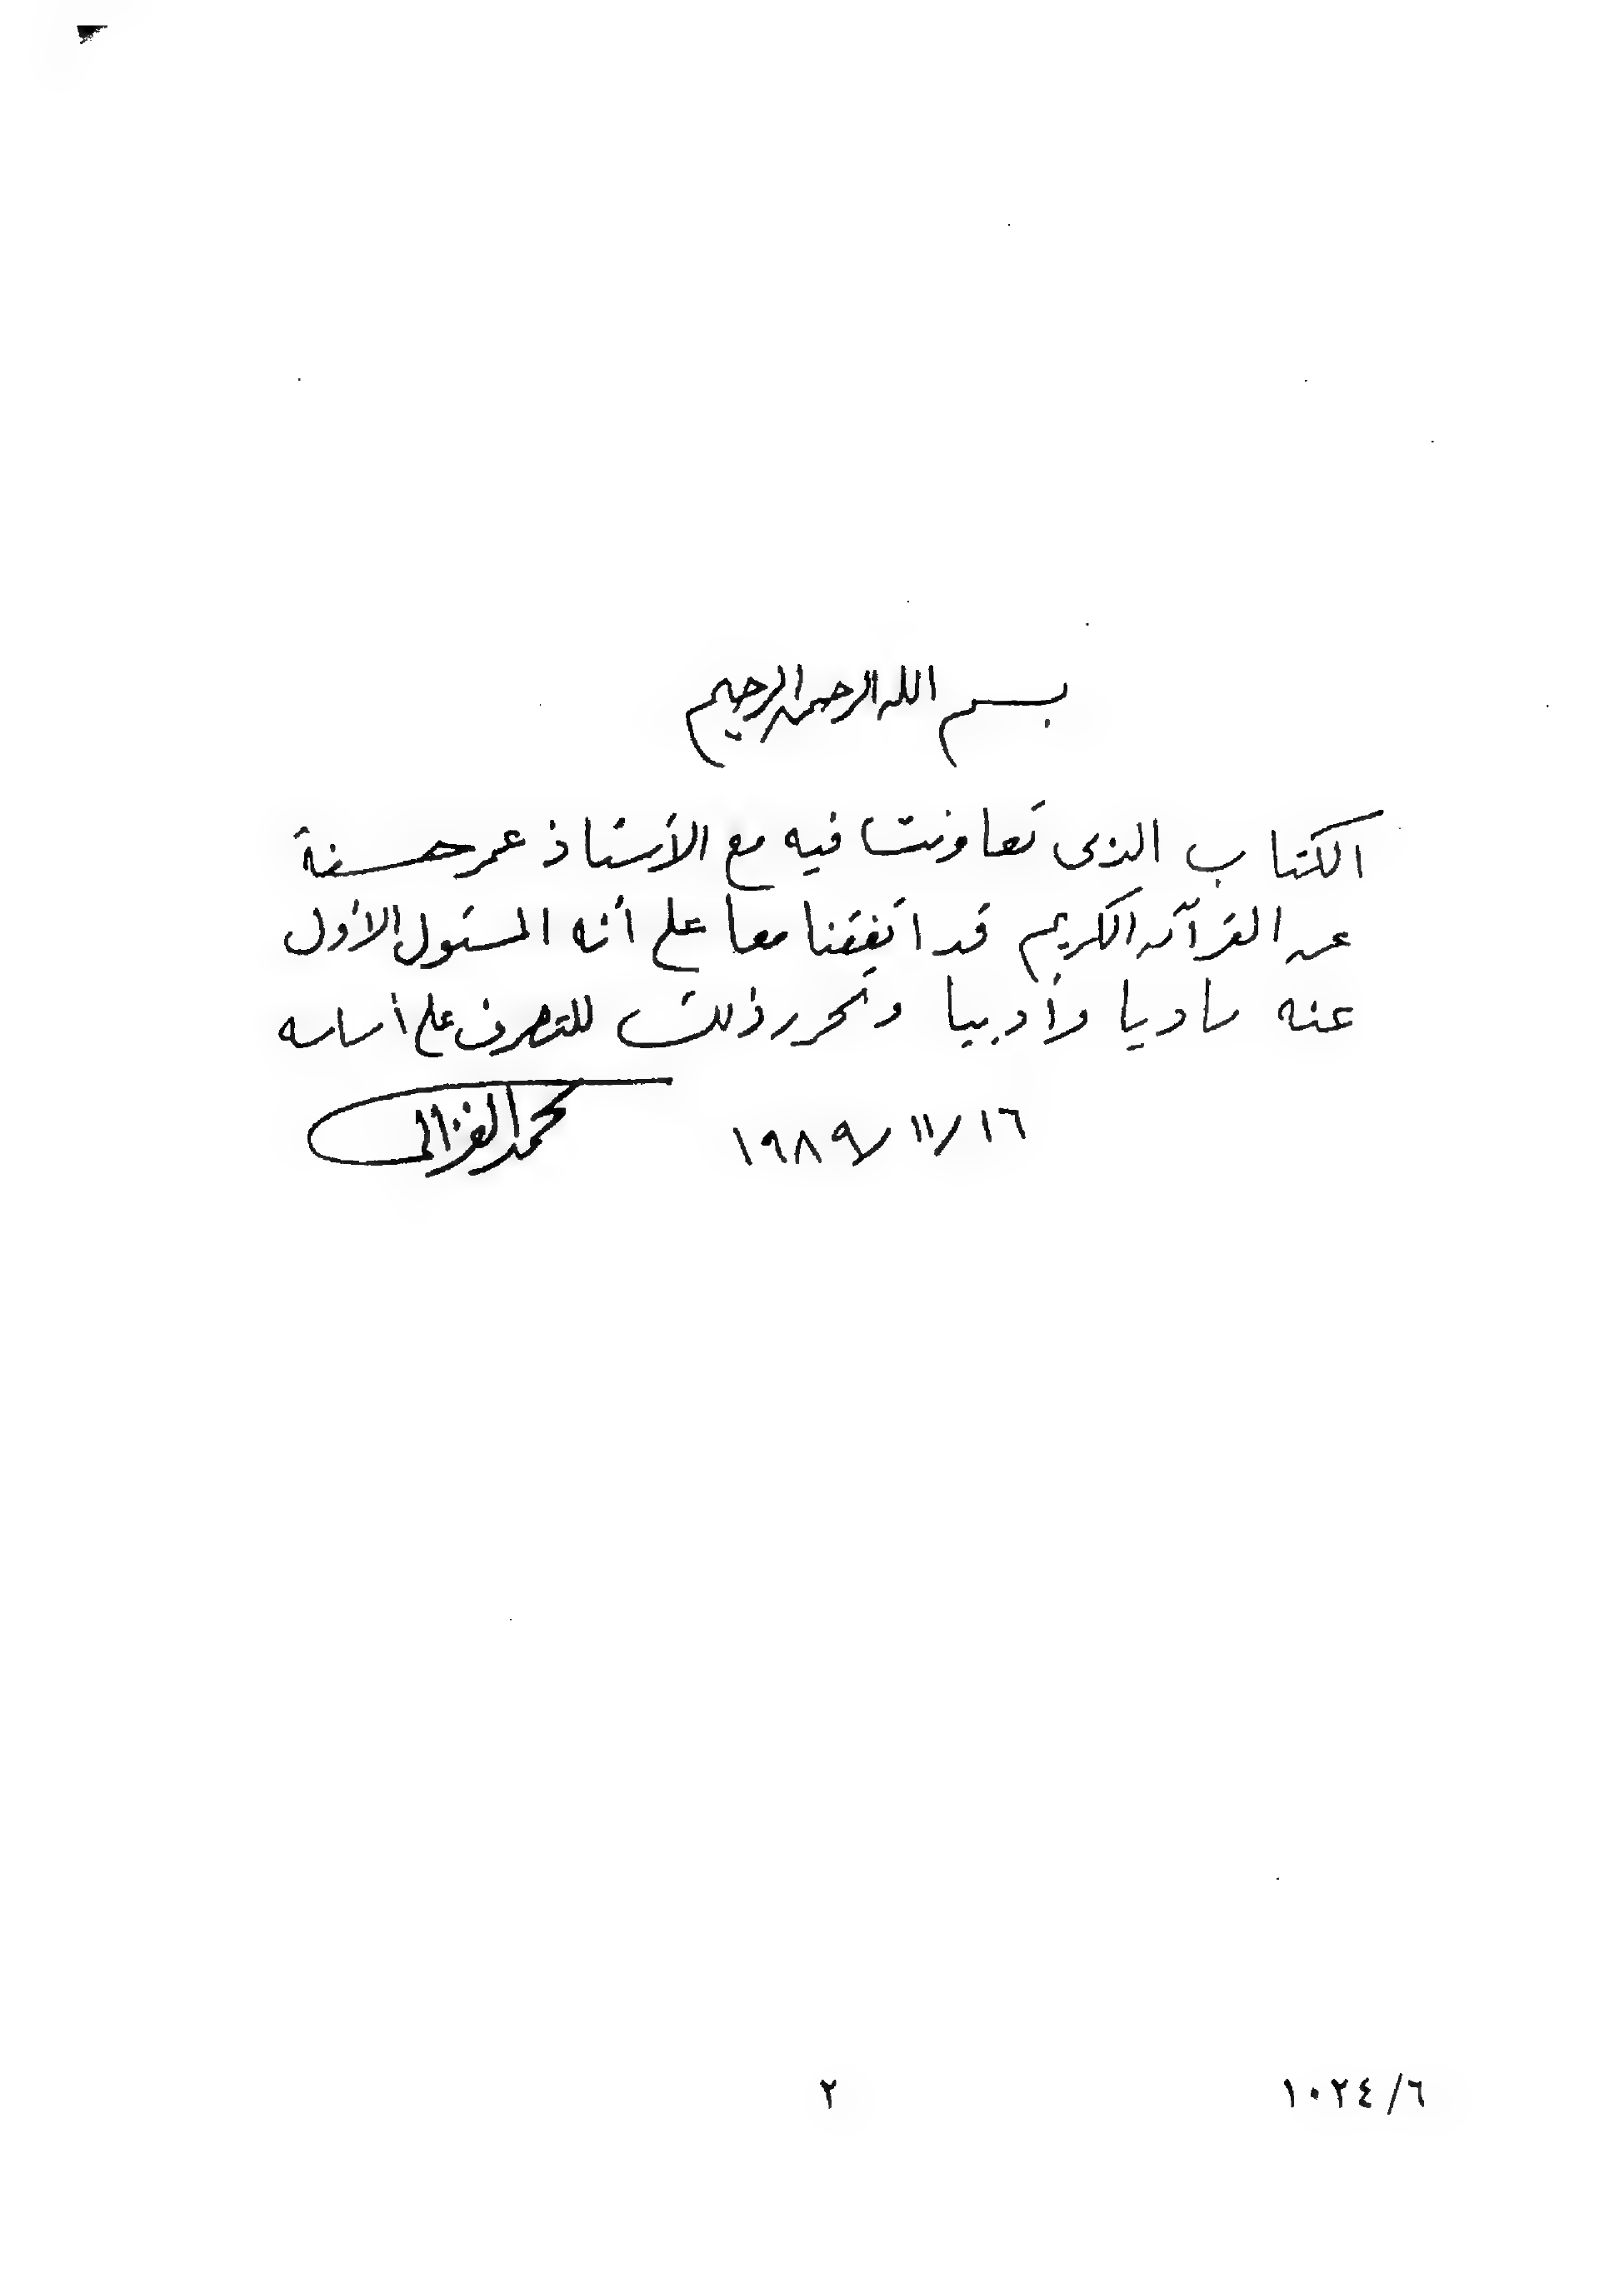 بسم الله الرحمن الرحيم
الكتاب الذى تعاونت فيه مع الأستاذ عمر حسنة
عن القرآن الكريم قد اتفقنا معا على أنه المسئول الأول
عنه ماديا وأدبيا وتحرر ذلك للتصرف على أساسه
١٦/١١/١٩٨٩ محمد الغزالى
٦/١٠٢٤ ٢